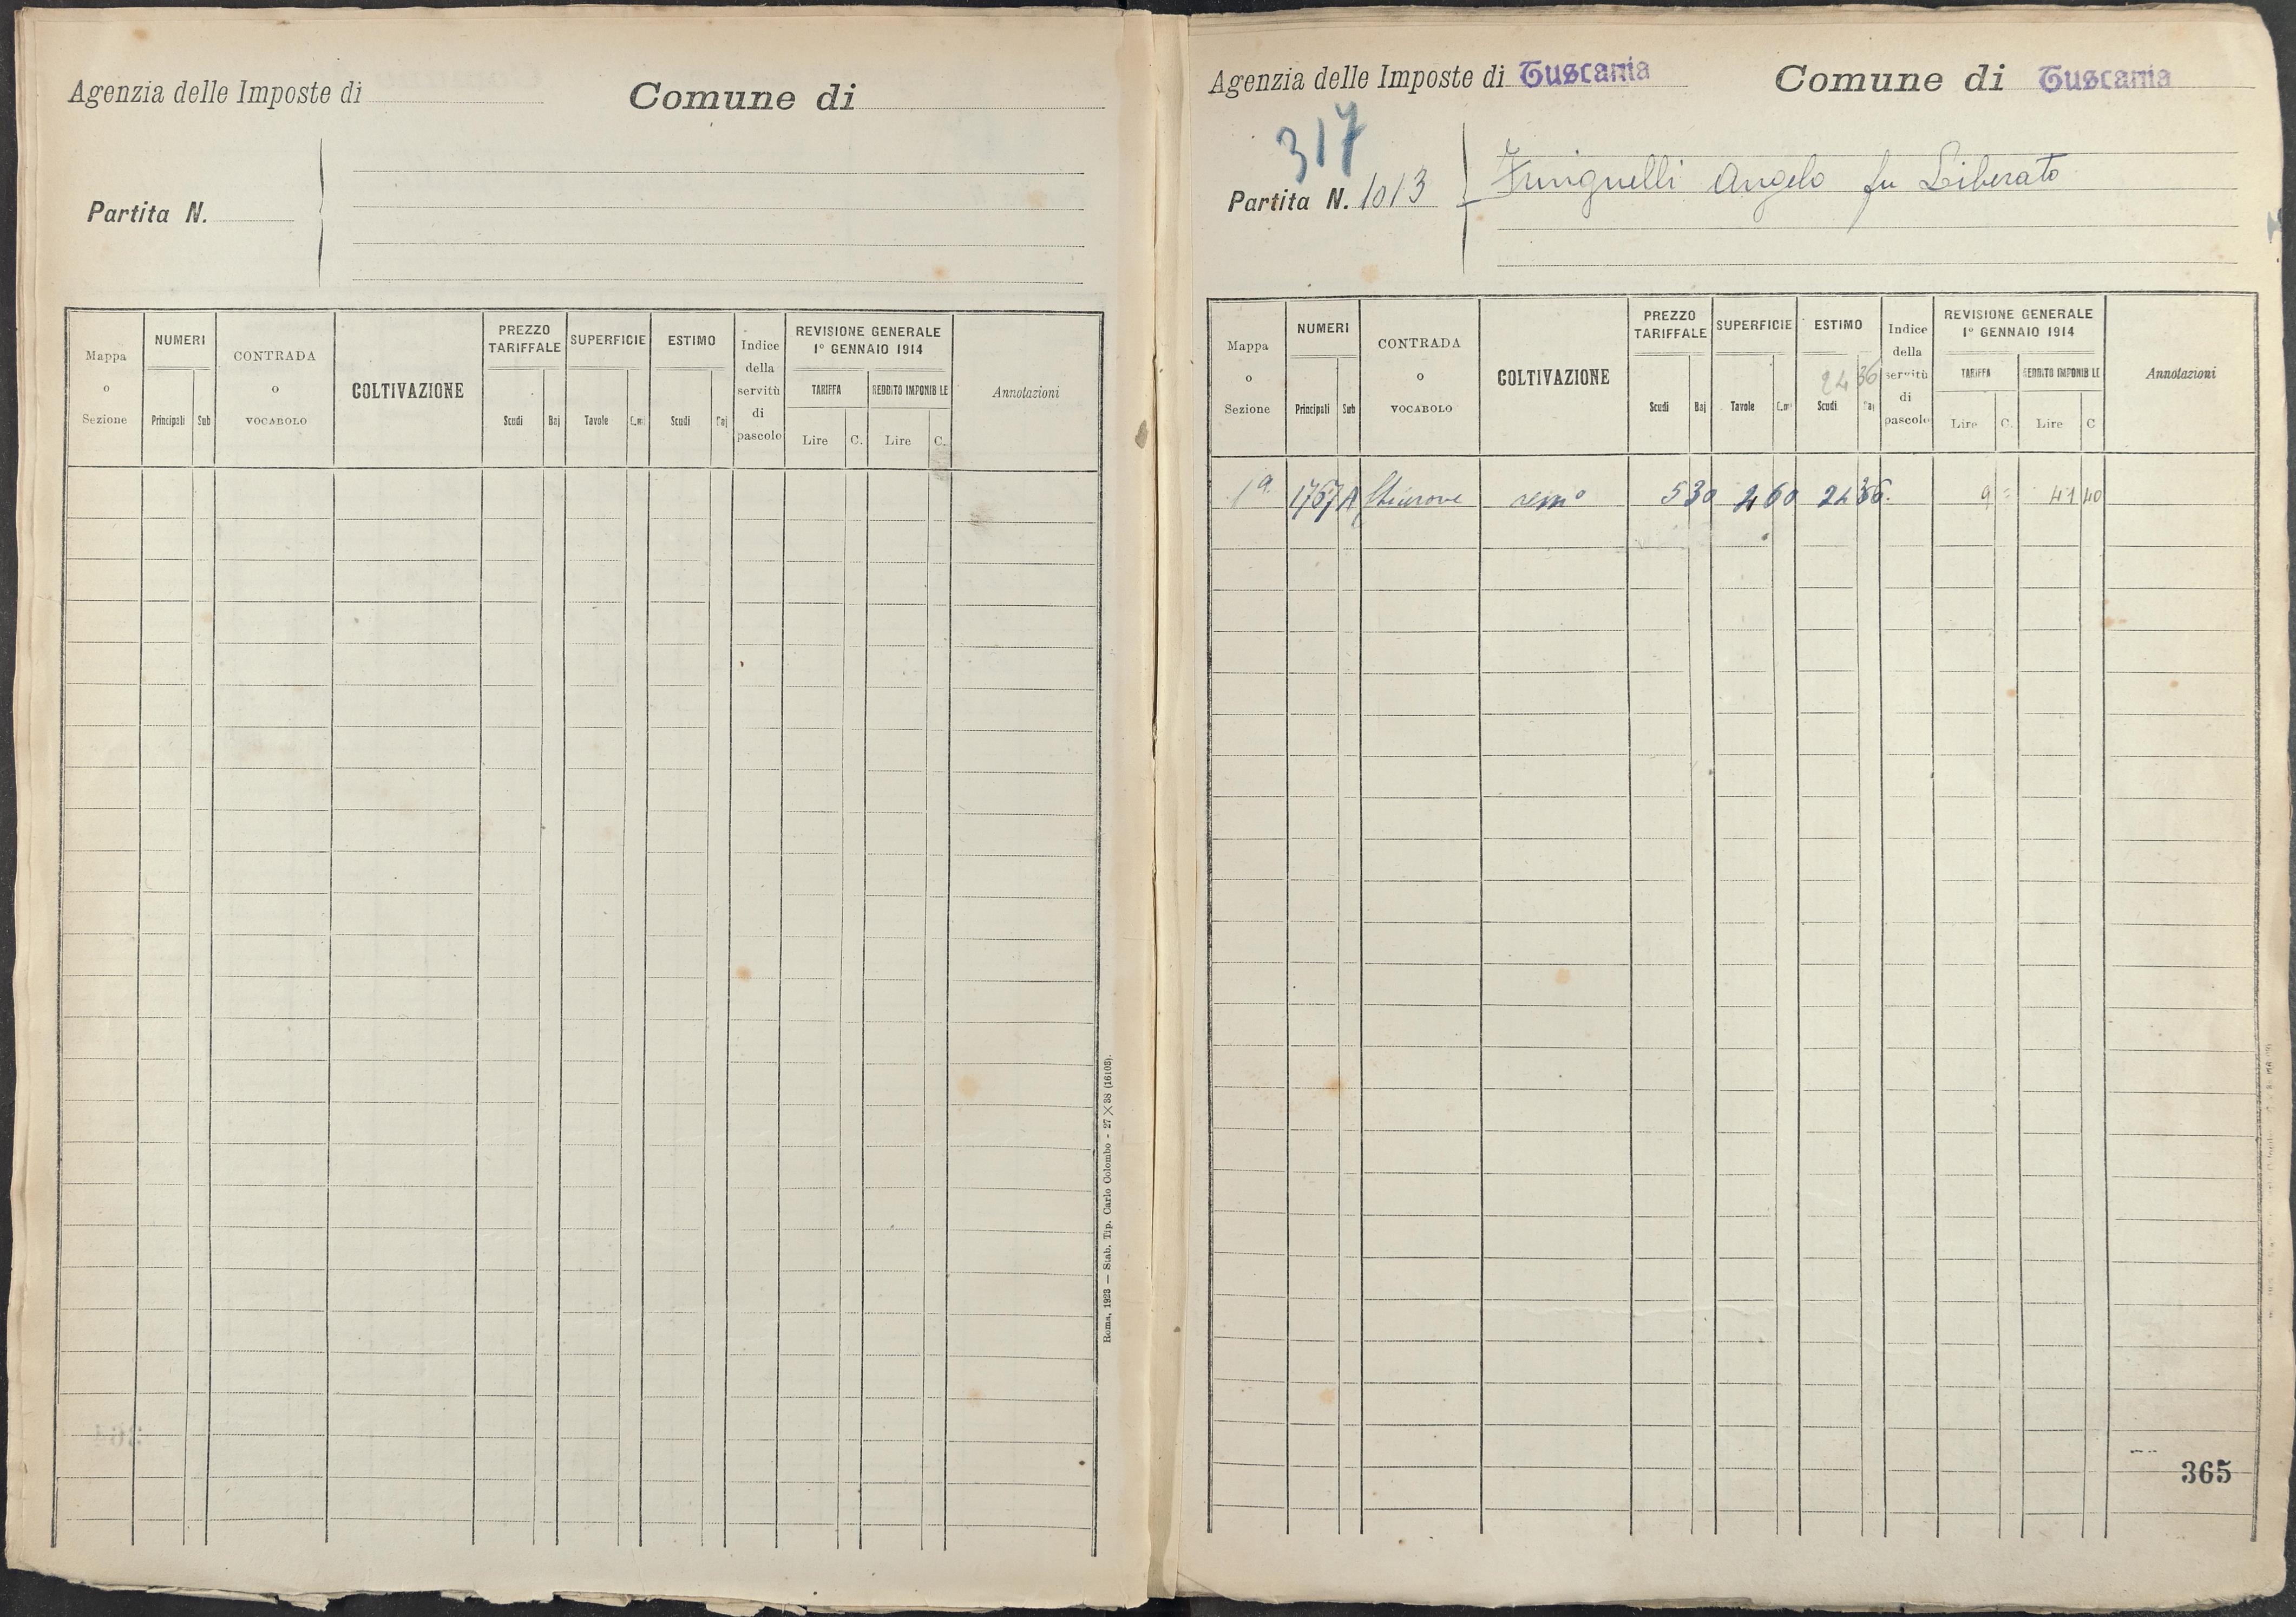 Agenzia delle Imposte di
Comune di
Partita N.
Mappa o Sezione
NUMERI
Principali
Sub
CONTRADA o VOCABOLO
COLTIVAZIONE
PREZZO TARIFFALE
Scudi
Baj
SUPERFICIE
Tavole
C.mi
ESTIMO
Scudi
Baj
Indice della servitù di pascolo
REVISIONE GENERALE 1° GENNAIO 1914
TARIFFA
REDDITO IMPONIBILE
Lire
C.
Lire
C.
Annotazioni
Roma, 1923 — Stab. Tip. Carlo Colombo - 27 X 38 (16103).
Agenzia delle Imposte di Tuscania
Comune di Tuscania
317
Partita N. 1013
Angelo fu Liberato
Mappa o Sezione
NUMERI
Principali
Sub
CONTRADA o VOCABOLO
COLTIVAZIONE
PREZZO TARIFFALE
Scudi
Baj
SUPERFICIE
Tavole
C.mi
ESTIMO
24 36
Scudi
Baj
Indice della servitù di pascolo
REVISIONE GENERALE 1° GENNAIO 1914
TARIFFA
REDDITO IMPONIBILE
Lire
C.
Lire
C
Annotazioni
1a 1767 A semo 5 30 4 60 24 36 9 = 41 40
365